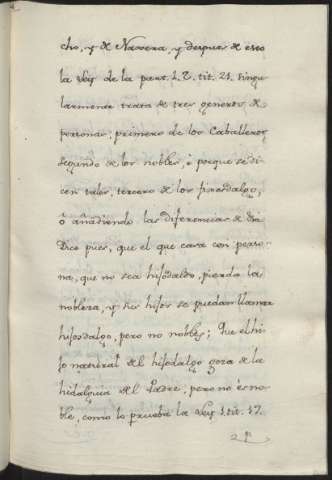 cho, y de Navera, y despues de esto
la Ley de la part. 2. tit. 21. singu
larmente trata de tres generos de
personas; primero de los Caballeros
segundo de los nobles, ò porque se di
cen tales, tercero de los fijosdalgo,
ò añadiendo las diferencias de
Dico pues, que el que casa con perso
na, que no sea hijodalgo, pierda la
nobleza, y sus hijos se puedan llamar
hijosdalgo, pero no nobles; Que el hi
jo natural del hijodalgo goza de la
hidalguia del Padre, pero no es no
ble, como lo prueba la Ley 1. tit. 17.
2 p.